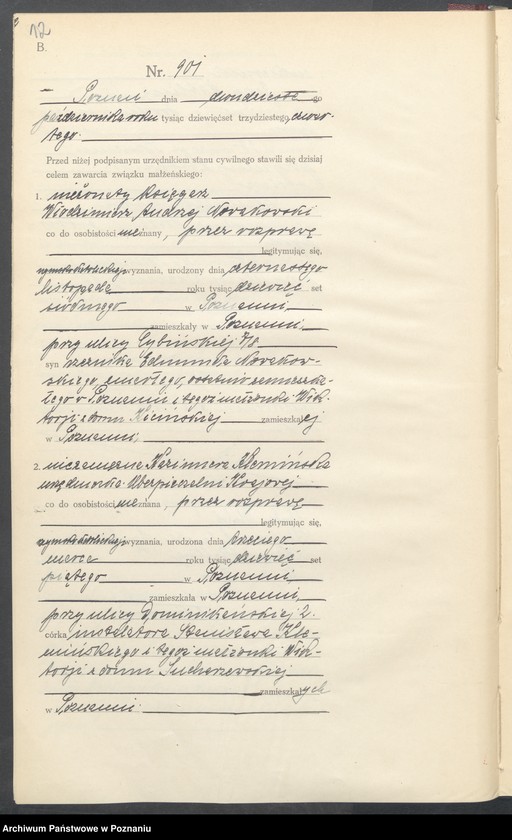 12
B.
Nr. 901
Poznań dnia dwudziestego
października roku tysiąc dziewięćset trzydziestego, dwó-
tego.
Przed niżej podpisanym urzędnikiem stanu cywilnego stawili się dzisiaj
celem zawarcia związku małżeńskiego:
1. nieżonaty księgarz
Włodzimierz, Andrzej Nowakowski
co do osobistości nieznany, przez rozprawę
legitymując się,
rzymsko-katolickiego wyznania, urodzony dnia czternastego
listopada roku tysiąc dziewięć set
siódmego w Poznaniu,
zamieszkały w Poznaniu,
przy ulicy Cybińskiej
syn rzeźnika Edmunda Nowakow-
skiego, zmarłego, ostatnio zamieszka-
łego w Poznaniu i tegoż małżonki Wik-
torji z domu zamieszkałej
w Poznaniu.
2. niezamężna Kazimiera Klemińska
urzędniczka Ubezpieczalni Krajowej
co do osobistości nieznana, przez rozprawę
legitymując się,
rzymsko-katolickiego wyznania, urodzona dnia trzeciego
marca roku tysiąc dziewięć set
piątego w Poznaniu
zamieszkała w Poznaniu,
przy ulicy Dominikańskiej 2.
córka instalatora Stanisława Kle-
mińskiego i tegoż małżonki Wik-
torji z domu Sucharzewskiej
zamieszkałych
w Poznaniu.
Archiwum Państwowe w Poznaniu